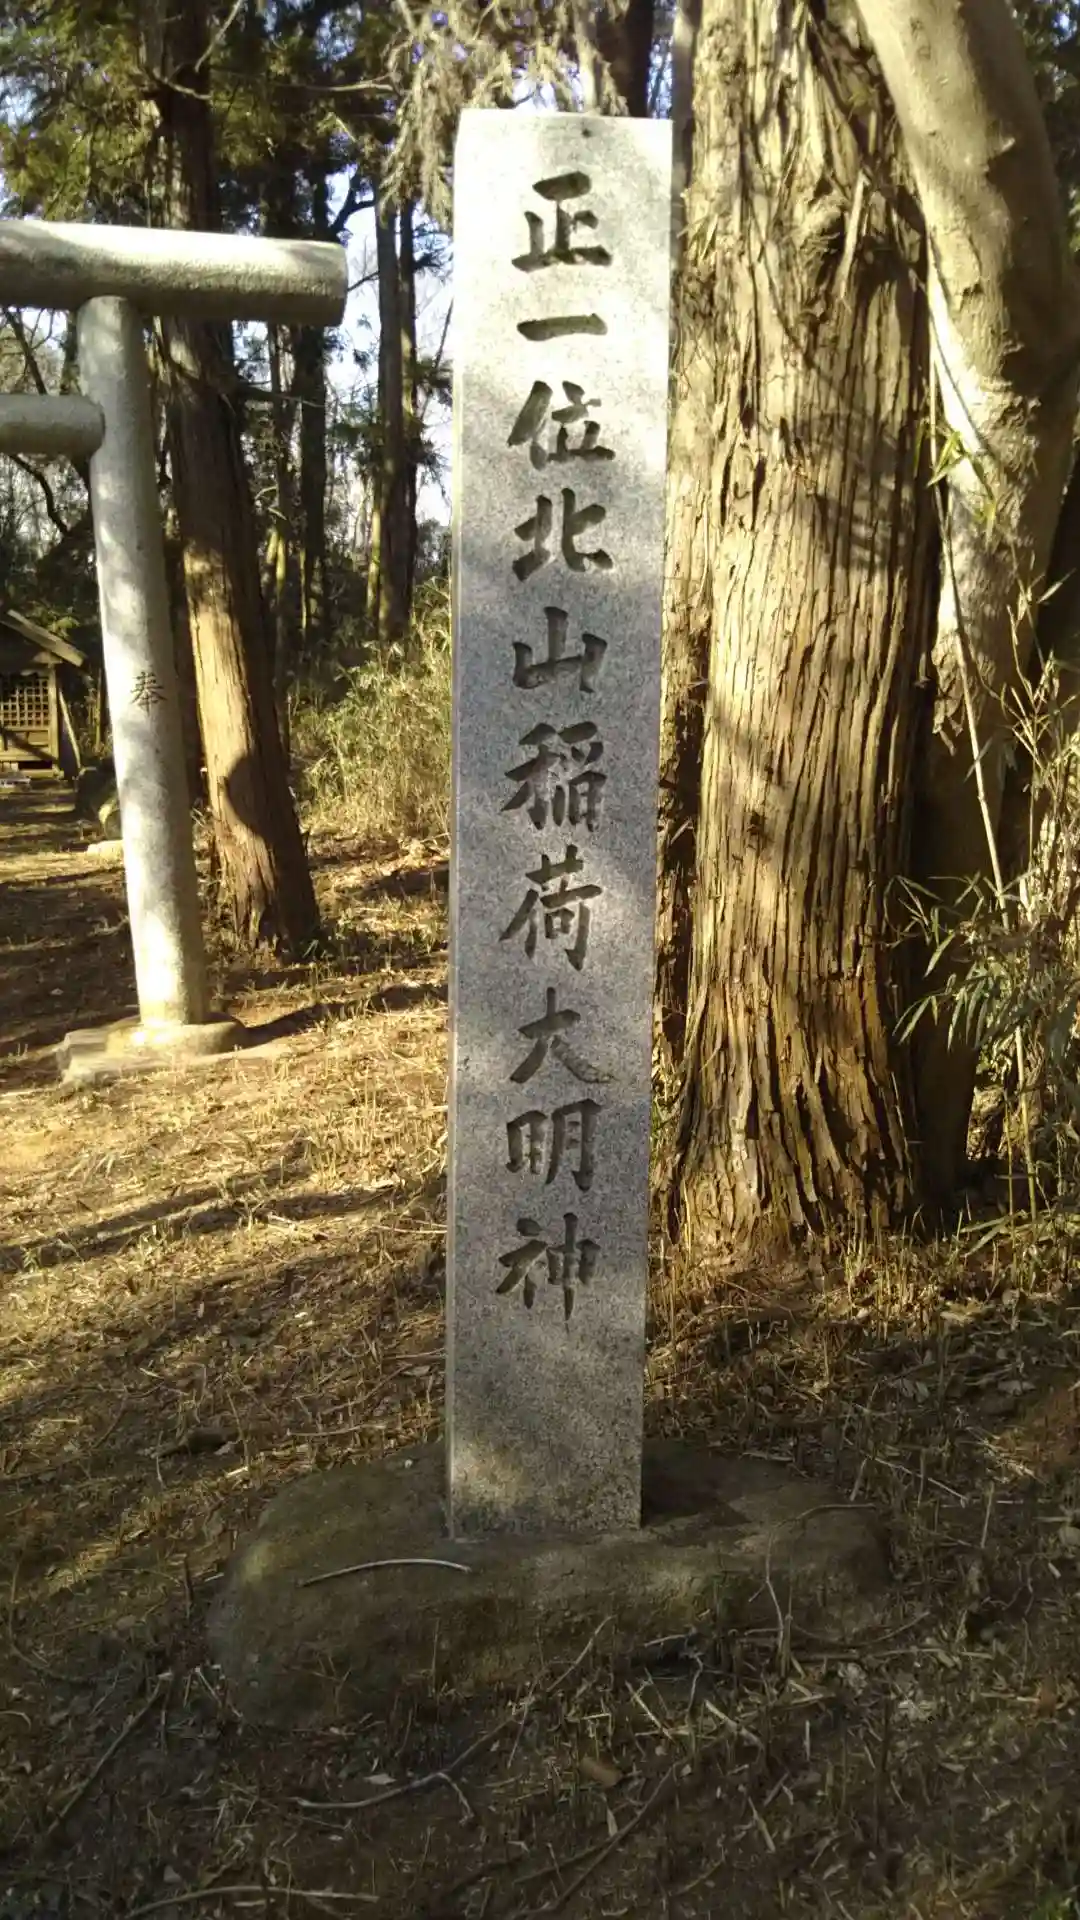 正一位北山稲荷大明神
奉